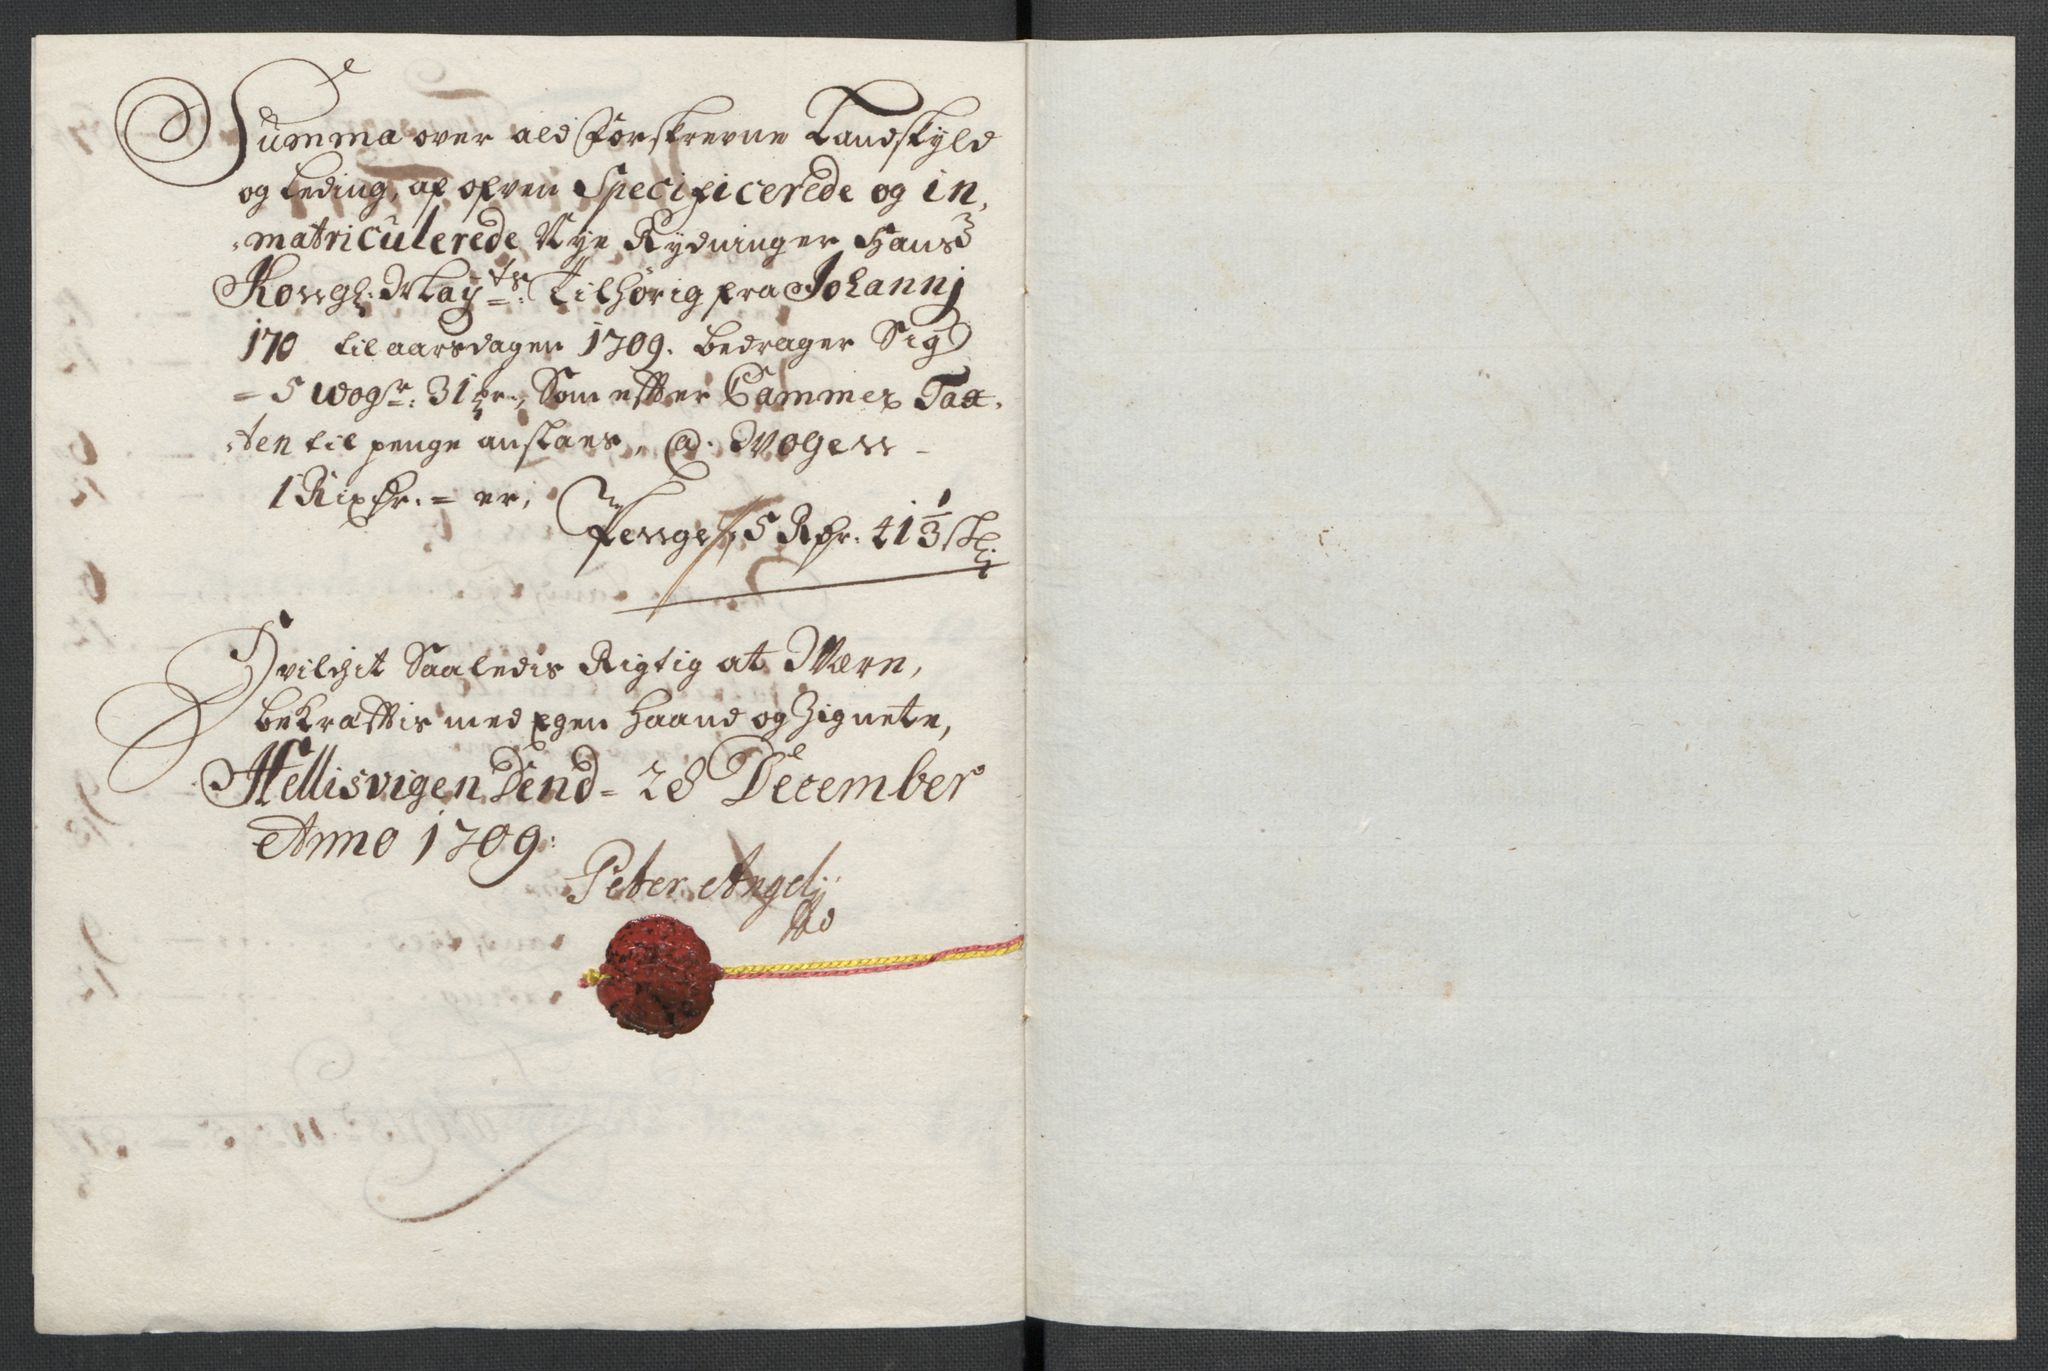 Summa over ald forskrevne Landskyld
og Leding, af ofven Specificerede og in,
matriculerede Nye Rydninger Hans
Kongl: May:ts: tilhørig fra Johannj
170 til aarsdagen 1709. bedrager Sig
= 5 wogr: 31 pr., Som efter Cammer Tax,
ten til penge anslaes, @. Wogen -
1 Rixdr. = er,
Penge 5 Rdr. 41 1/3 sk:
Hvilchit Saaledis Rigtig at Være,
bekræftis med Egen Haand og Zignete,
Hellisvigen Dend = 28 December
Anno 1709:
Peter Angelj